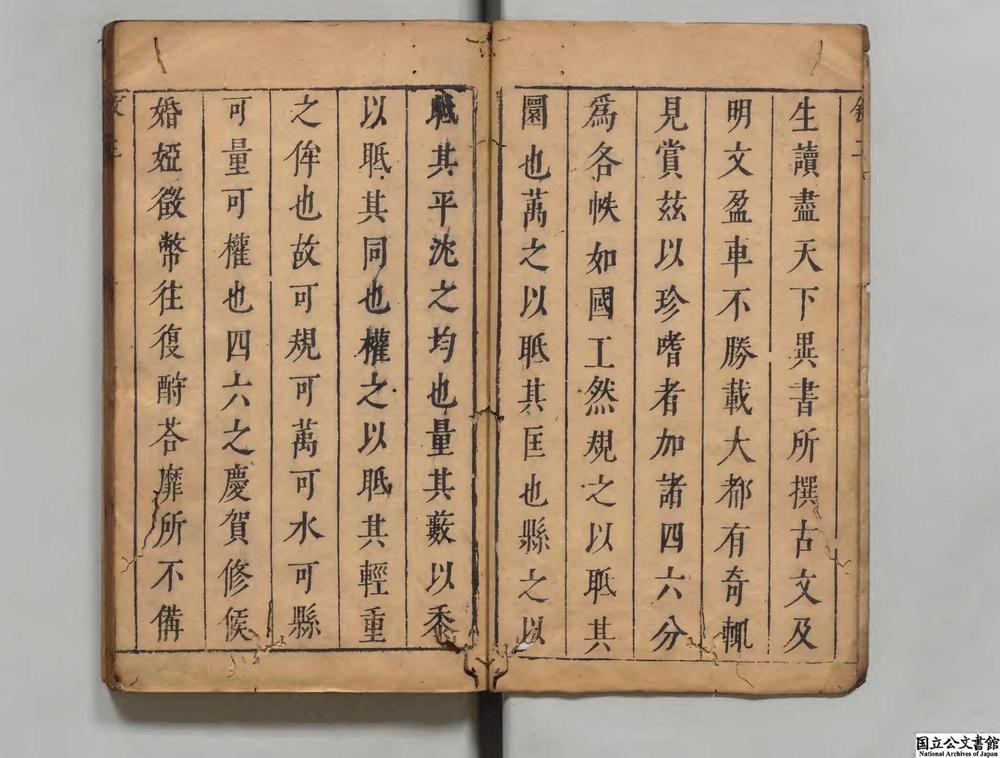 生讀盡天下異書所撰古文及
明文盈車不勝載大都有奇輒
見賞茲以珍嗜者加諸四六分
為各帙如國工然規之以眡其
圜也萬之以眡其匡也縣之以
眡其平沈之均也量其藪以黍
以眡其同也權之以眡其輕重
之侔也故可規可萬可水可縣
可量可權也四六之慶賀修候
婚婭徵幣往復酧荅靡所不備
国立公文書館
National Archives of Japan